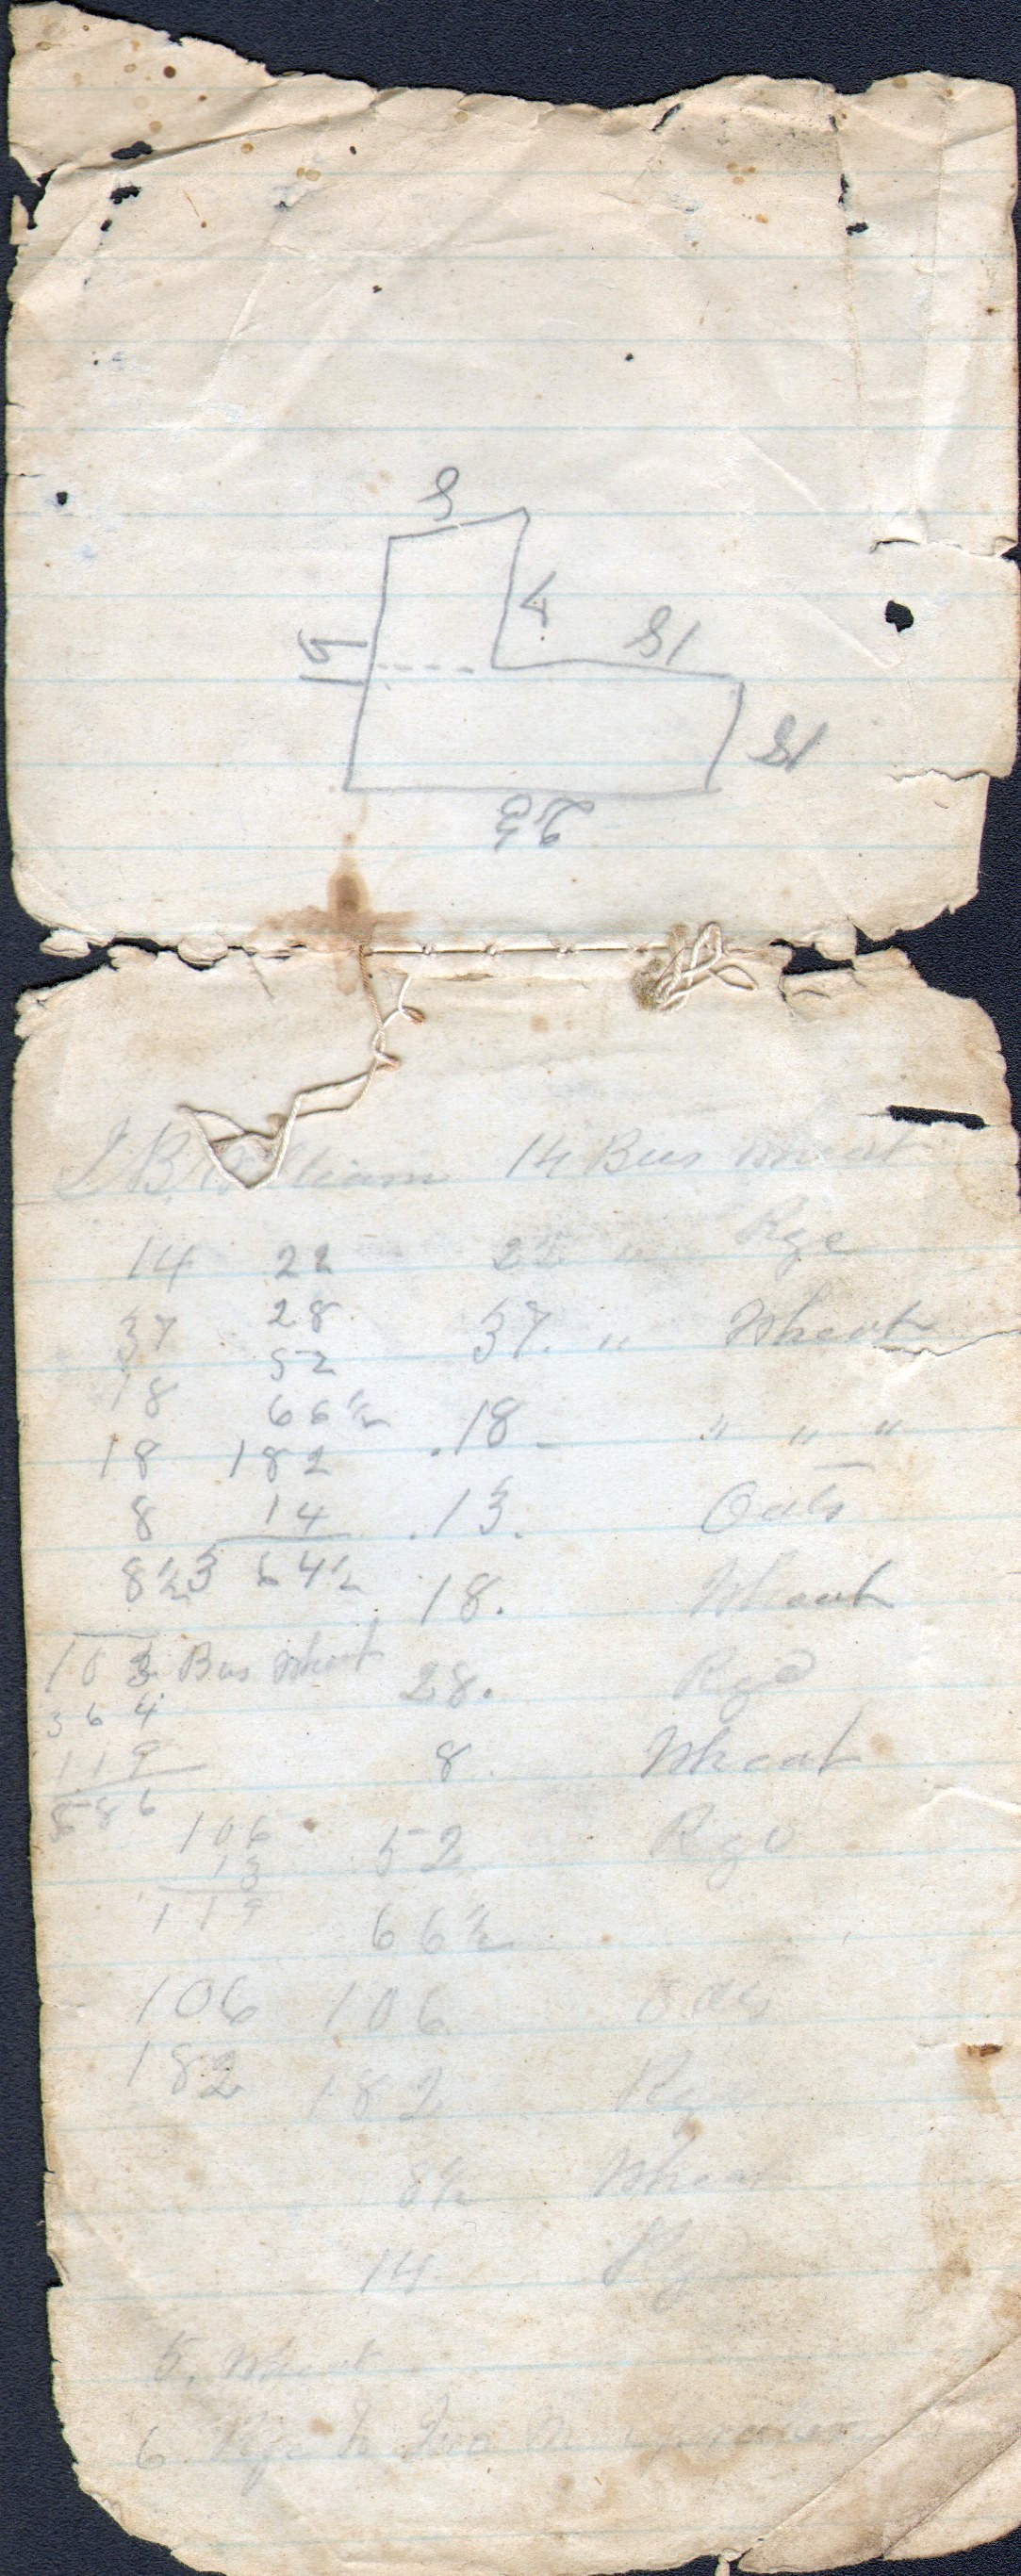 8
4
18
18
23
J. B. William 14 Bus Wheat
14 22 22 " Rye
37 28. 37. " Wheat
18 52
66½ .18. " " "
18 182
8 14 .13. Oats
8½ 364½ 18. Wheat
103 Bus Wheat 28. Rye
364
119 8. Wheat
586
106 52 Rye
13
119 66½
106 106 Oats
182 182 Rye
8½ Wheat
14 Rye
5. Wheat
6 Rye